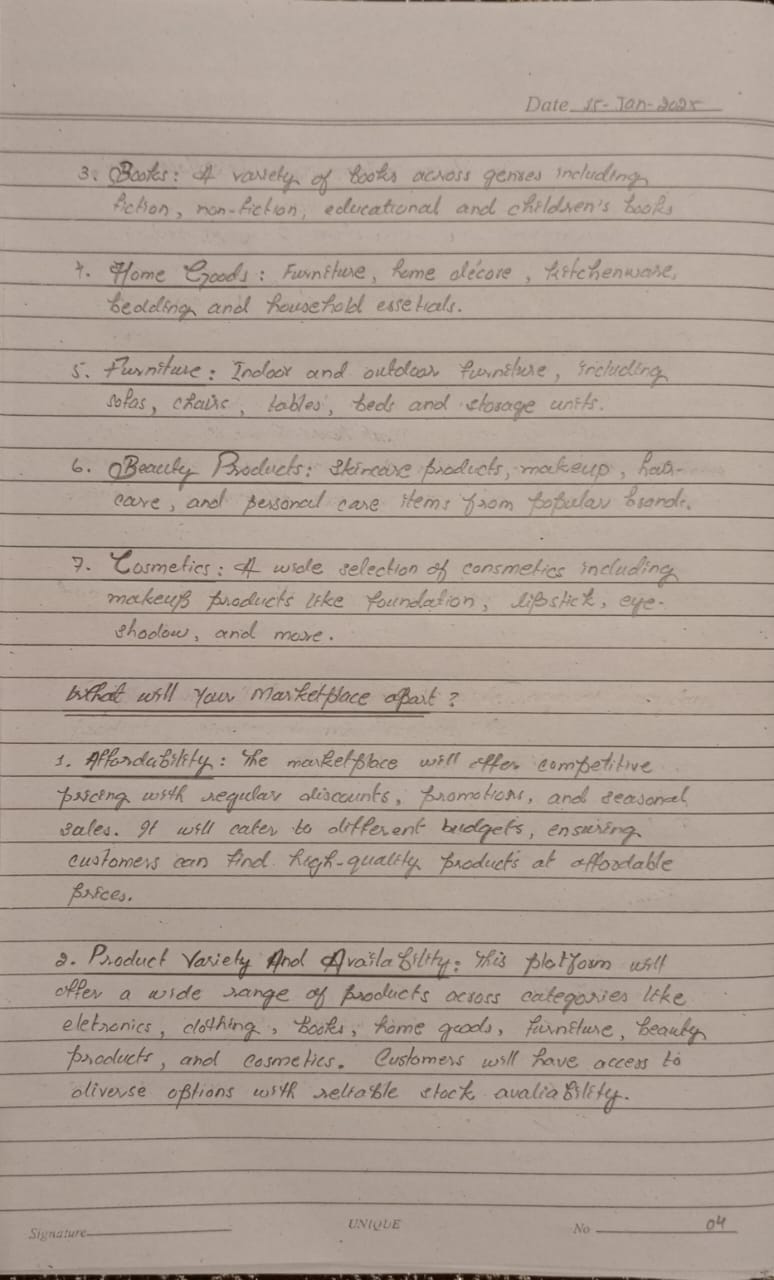 Date 15-Jan-2025
3. Books: A variety of books across genres including
fiction, non-fiction, educational and children's books
4. Home Goods: Furniture, home décore, kitchenware,
bedding and household essetials.
5. Furniture: Indoor and outdoor furniture, including
sofas, chairs, tables, beds and storage units.
6. Beauty Products: Skincare products, makeup, hair-
care, and personal care items from popular brands.
7. Cosmetics: A wide selection of consmetics including
makeup products like foundation, lipstick, eye-
shadow, and more.
What will Your Marketplace apart?
1. Affordability: The marketplace will offer competitive
pricing with regular discounts, promotions, and seasonal
sales. It will cater to different budgets, ensuring
customers can find high-quality products at affordable
prices.
2. Product Variety And Availability: This platform will
offer a wide range of products across categories like
eletronics, clothing, books, home goods, furniture, beauty
products, and cosmetics. Customers will have access to
diverse options with reliable stock avaliability.
Signature
UNIQUE
No 04